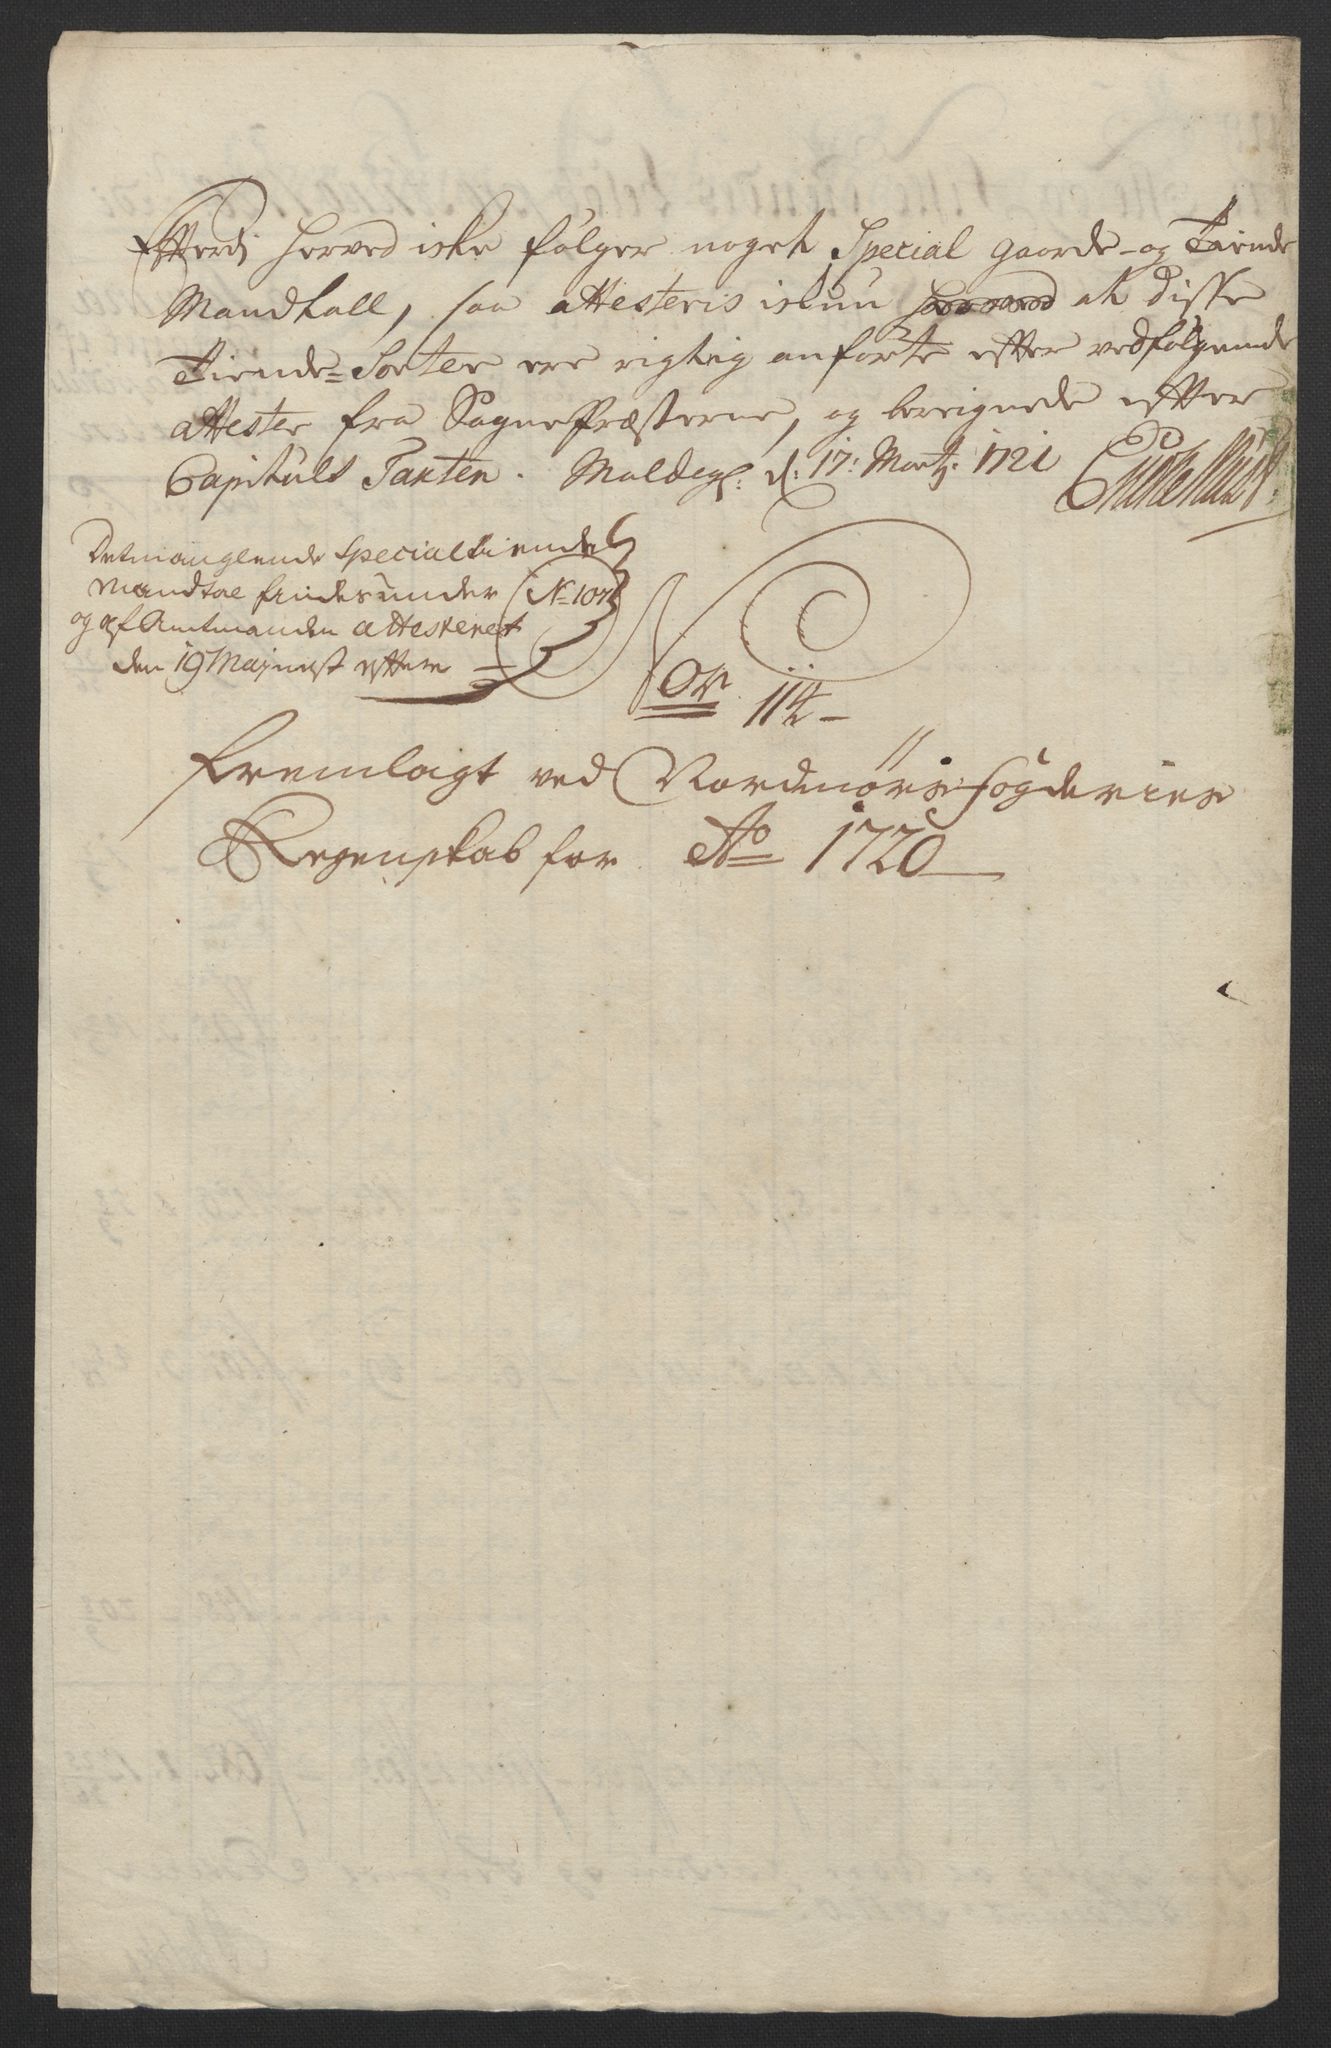 Efterdj herved icke følger noget Special gaorde- og Tiende
Mandtall, saa attesteris ickun at disse
Tiende-Sorter ere rigtig anførte efter vedfølgende
attester fra Sognepræsterne, og beregnede efter
Capituls Taxten. Moldeg: d: 17: Martj: 1721
Det manglende Special tiende
Mandtal findes under No 107
og af Amtmanden attesteret
den 19 Maj nest efter
No 114
fremlagt ved Nordmørs fogderies
Regenskab for Ao 1720